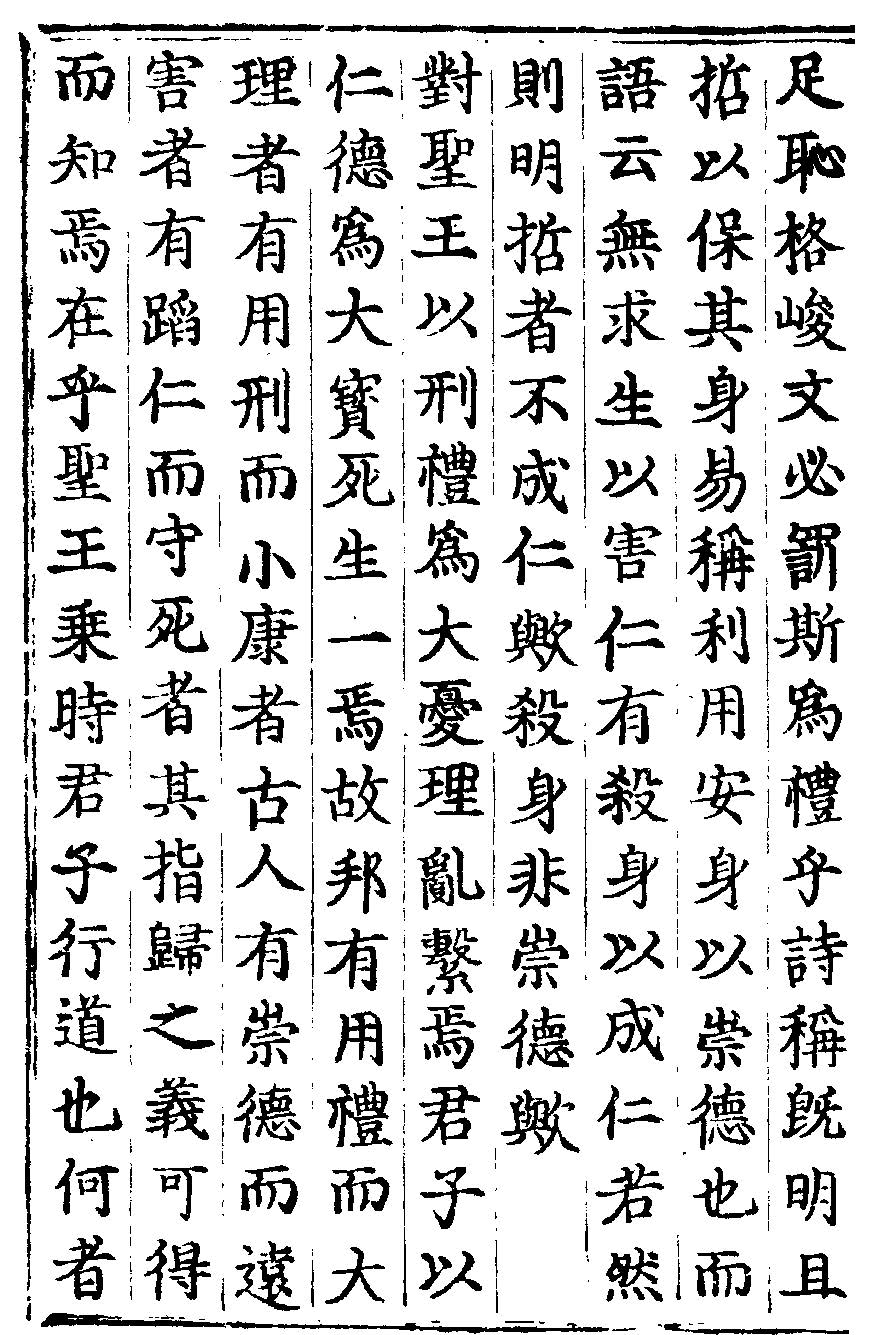 足恥格峻文必罰斯爲禮乎詩稱既明且
哲以保其身易稱利用安身以崇德也而
語云無求生以害仁有殺身以成仁若然
則明哲者不成仁歟殺身非崇德歟
對聖王以刑禮爲大憂理亂繫焉君子以
仁德爲大寳死生一焉故邦有用禮而大
理者有用刑而小康者古人有崇德而遠
害者有蹈仁而守死者其指歸之義可得
而知焉在乎聖王乗時君子行道也何者